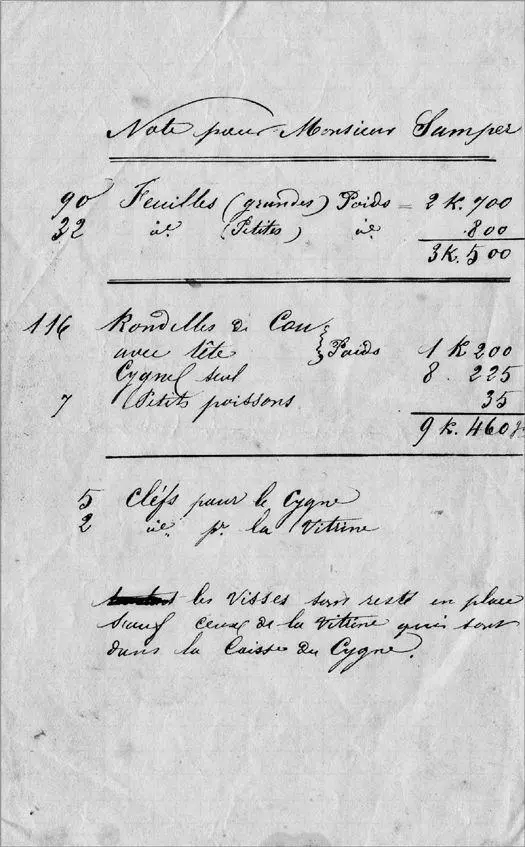 Note pour Monsieur Samper
90 Feuilles (grandes) Poids = 2 k. 700
32 id. (Petites) id. .800
3 k. 500
116 Rondelles de Cou
avec tête } Poids 1 k 200
Cygne seul 8 . 225
7 Petits poissons 35
9 k. 460 g
5 Cléfs pour le Cygne
2 id. pr. la Vitrine
les Visses sont resté en place
sauf ceux de la Vitrine qui sont
dans la Caisse du Cygne.